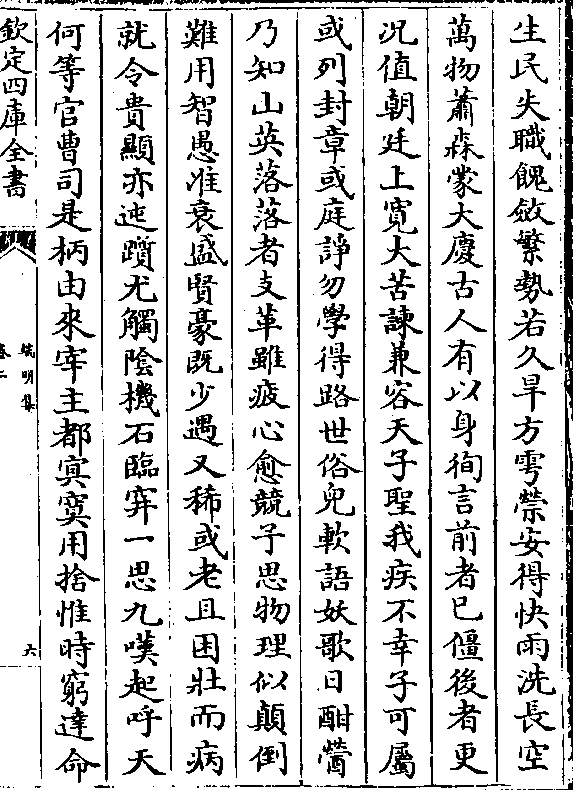 生民失職餽斂繁勢若久旱方雩禜安得快雨洗長空
萬物蕭森蒙大慶古人有以身徇言前者已僵後者更
况值朝廷上寛大苦諫兼容天子聖我疾不幸子可屬
或列封章或庭諍勿學得路世俗兒軟語妖歌日酣醟
乃知山英落落者支革雖疲心愈競子思物理似顛倒
難用智愚准衰盛賢豪既少遇又稀或老且困壯而病
就令貴顯亦迍躓尤觸陰機石臨穽一思九嘆起呼天
何等官曹司是柄由來宰主都寞寞用捨惟時窮達命
欽定四庫全書
明集
卷二
六